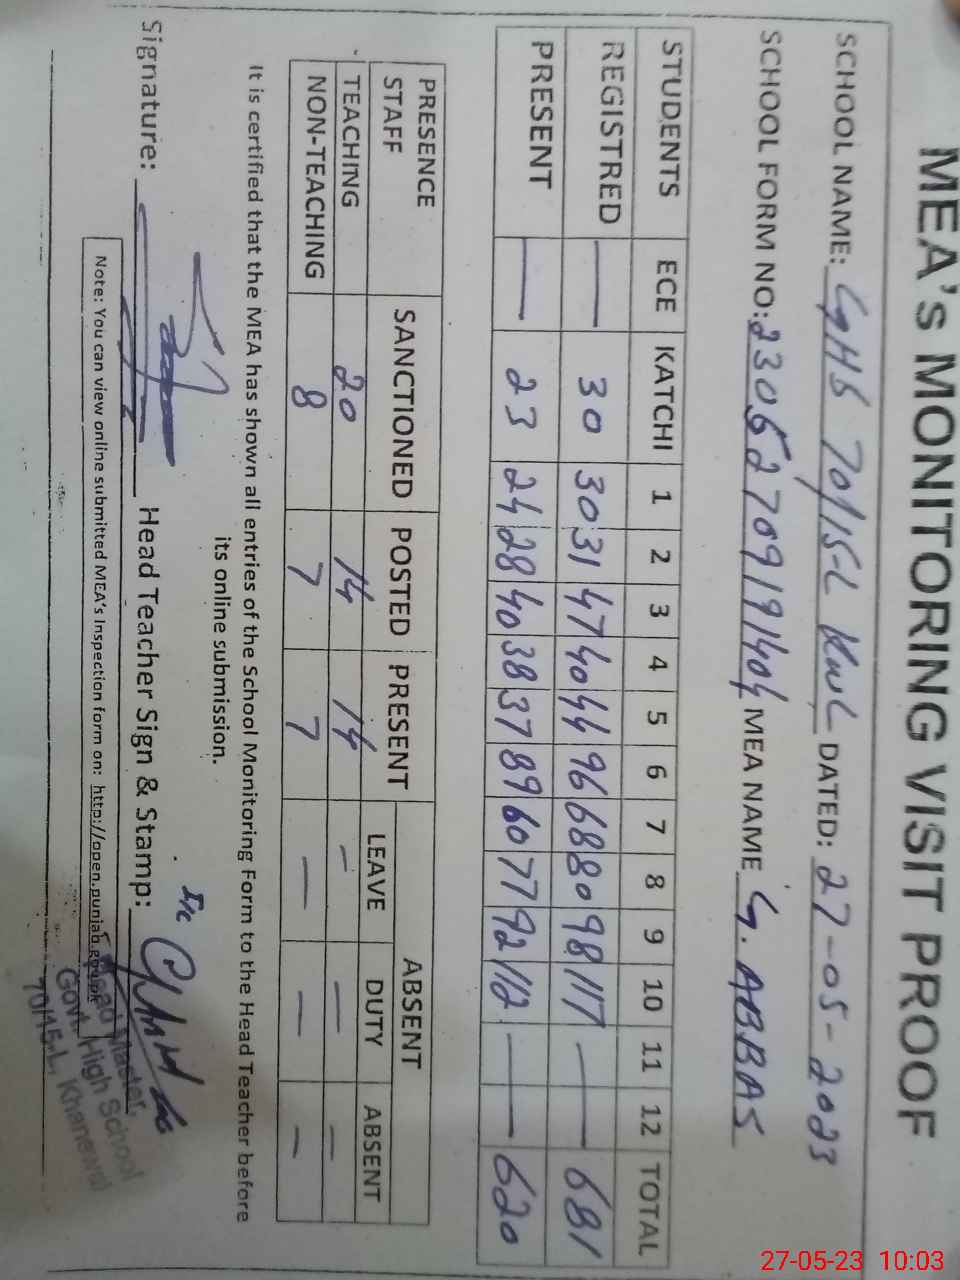 MEA's MONITORING VISIT PROOF
SCHOOL NAME: GHS 70/15-L KWL DATED: 27-05-2023
SCHOOL FORM NO: 23052709191404 MEA NAME G. ABBAS
STUDENTS ECE KATCHI 1 2 3 4 5 6 7 8 9 10 11 12 TOTAL
REGISTRED — 30 30 31 47 40 44 96 68 80 98 117 — 681
PRESENT — 23 24 28 40 38 37 89 60 77 92 112 — — 620
PRESENCE STAFF SANCTIONED POSTED PRESENT ABSENT
LEAVE DUTY ABSENT
TEACHING 20 14 14 — — —
NON-TEACHING 8 7 7 — — —
It is certified that the MEA has shown all entries of the School Monitoring Form to the Head Teacher before
its online submission.
Signature: Head Teacher Sign & Stamp:
I/c
Note: You can view online submitted MEA's Inspection form on: http://open.punjab.gov.pk
Head Master,
Govt. High School
70/15-L, Khanewal
27-05-23 10:03